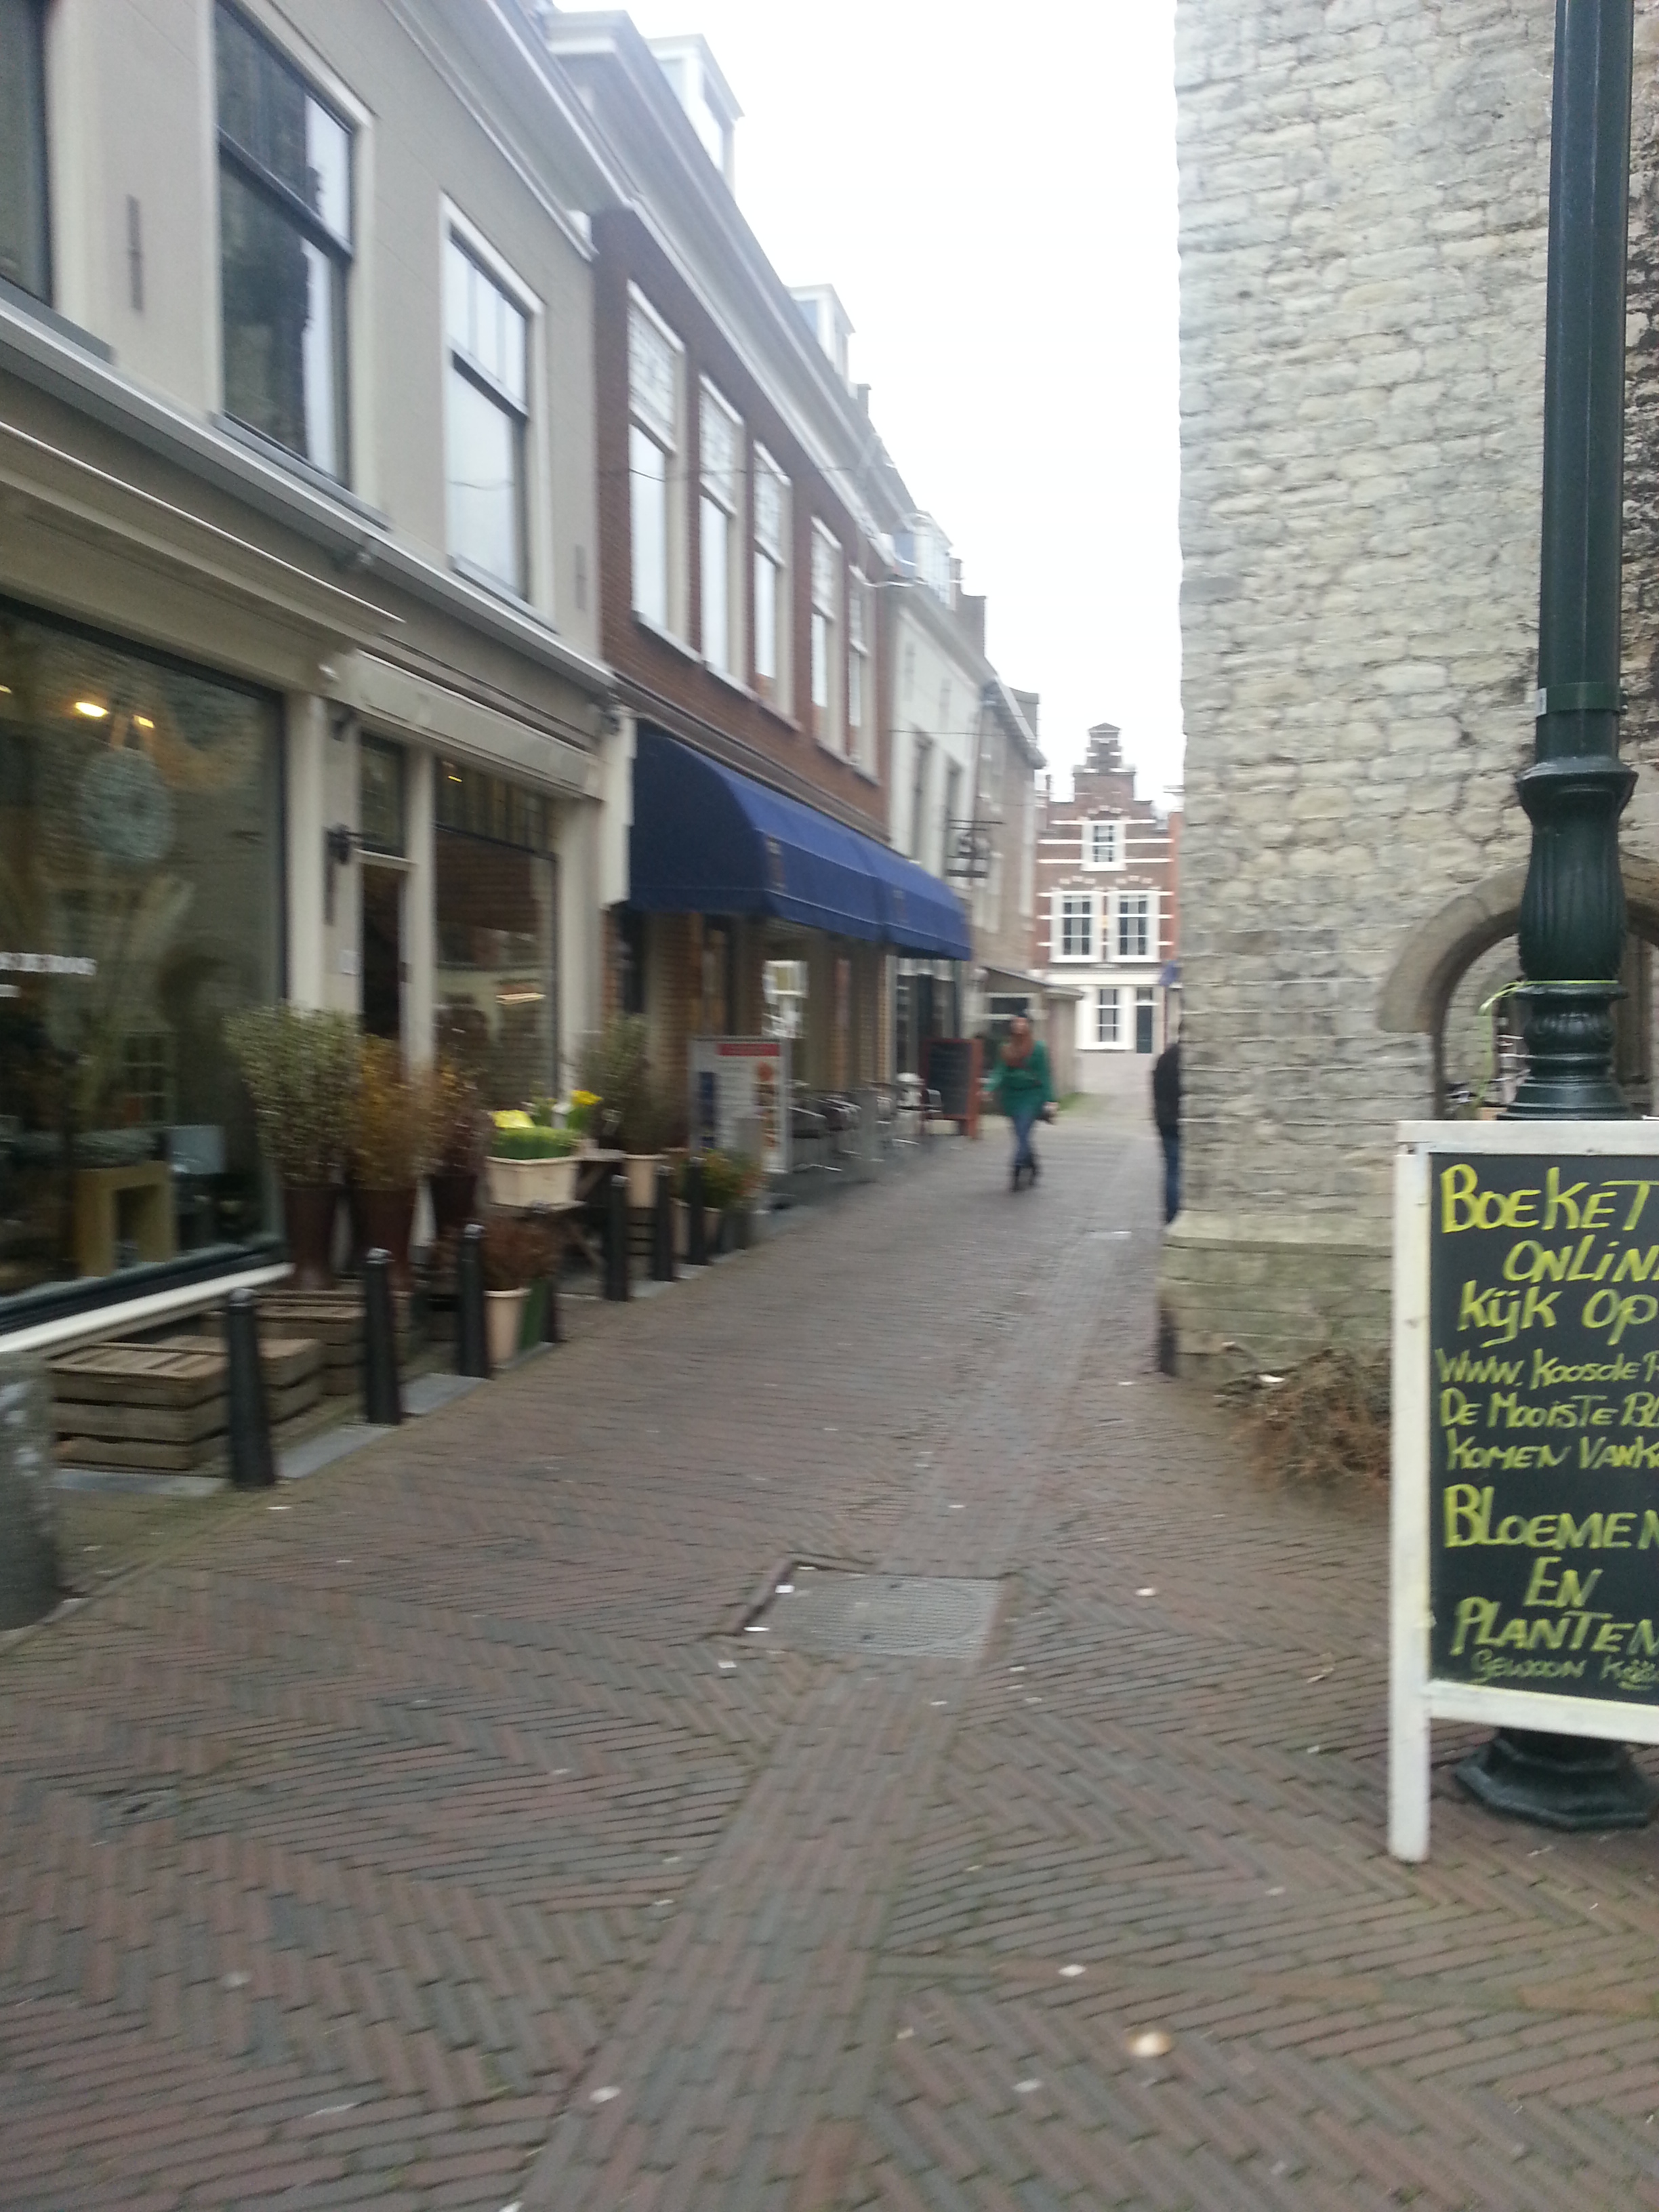 BOEKET
ONLIN
KIJK OP
WWW.KOOSDE
DE MOOISTE BL
KOMEN VAN K
BLOEMEN
EN
PLANTEN
GEWOON